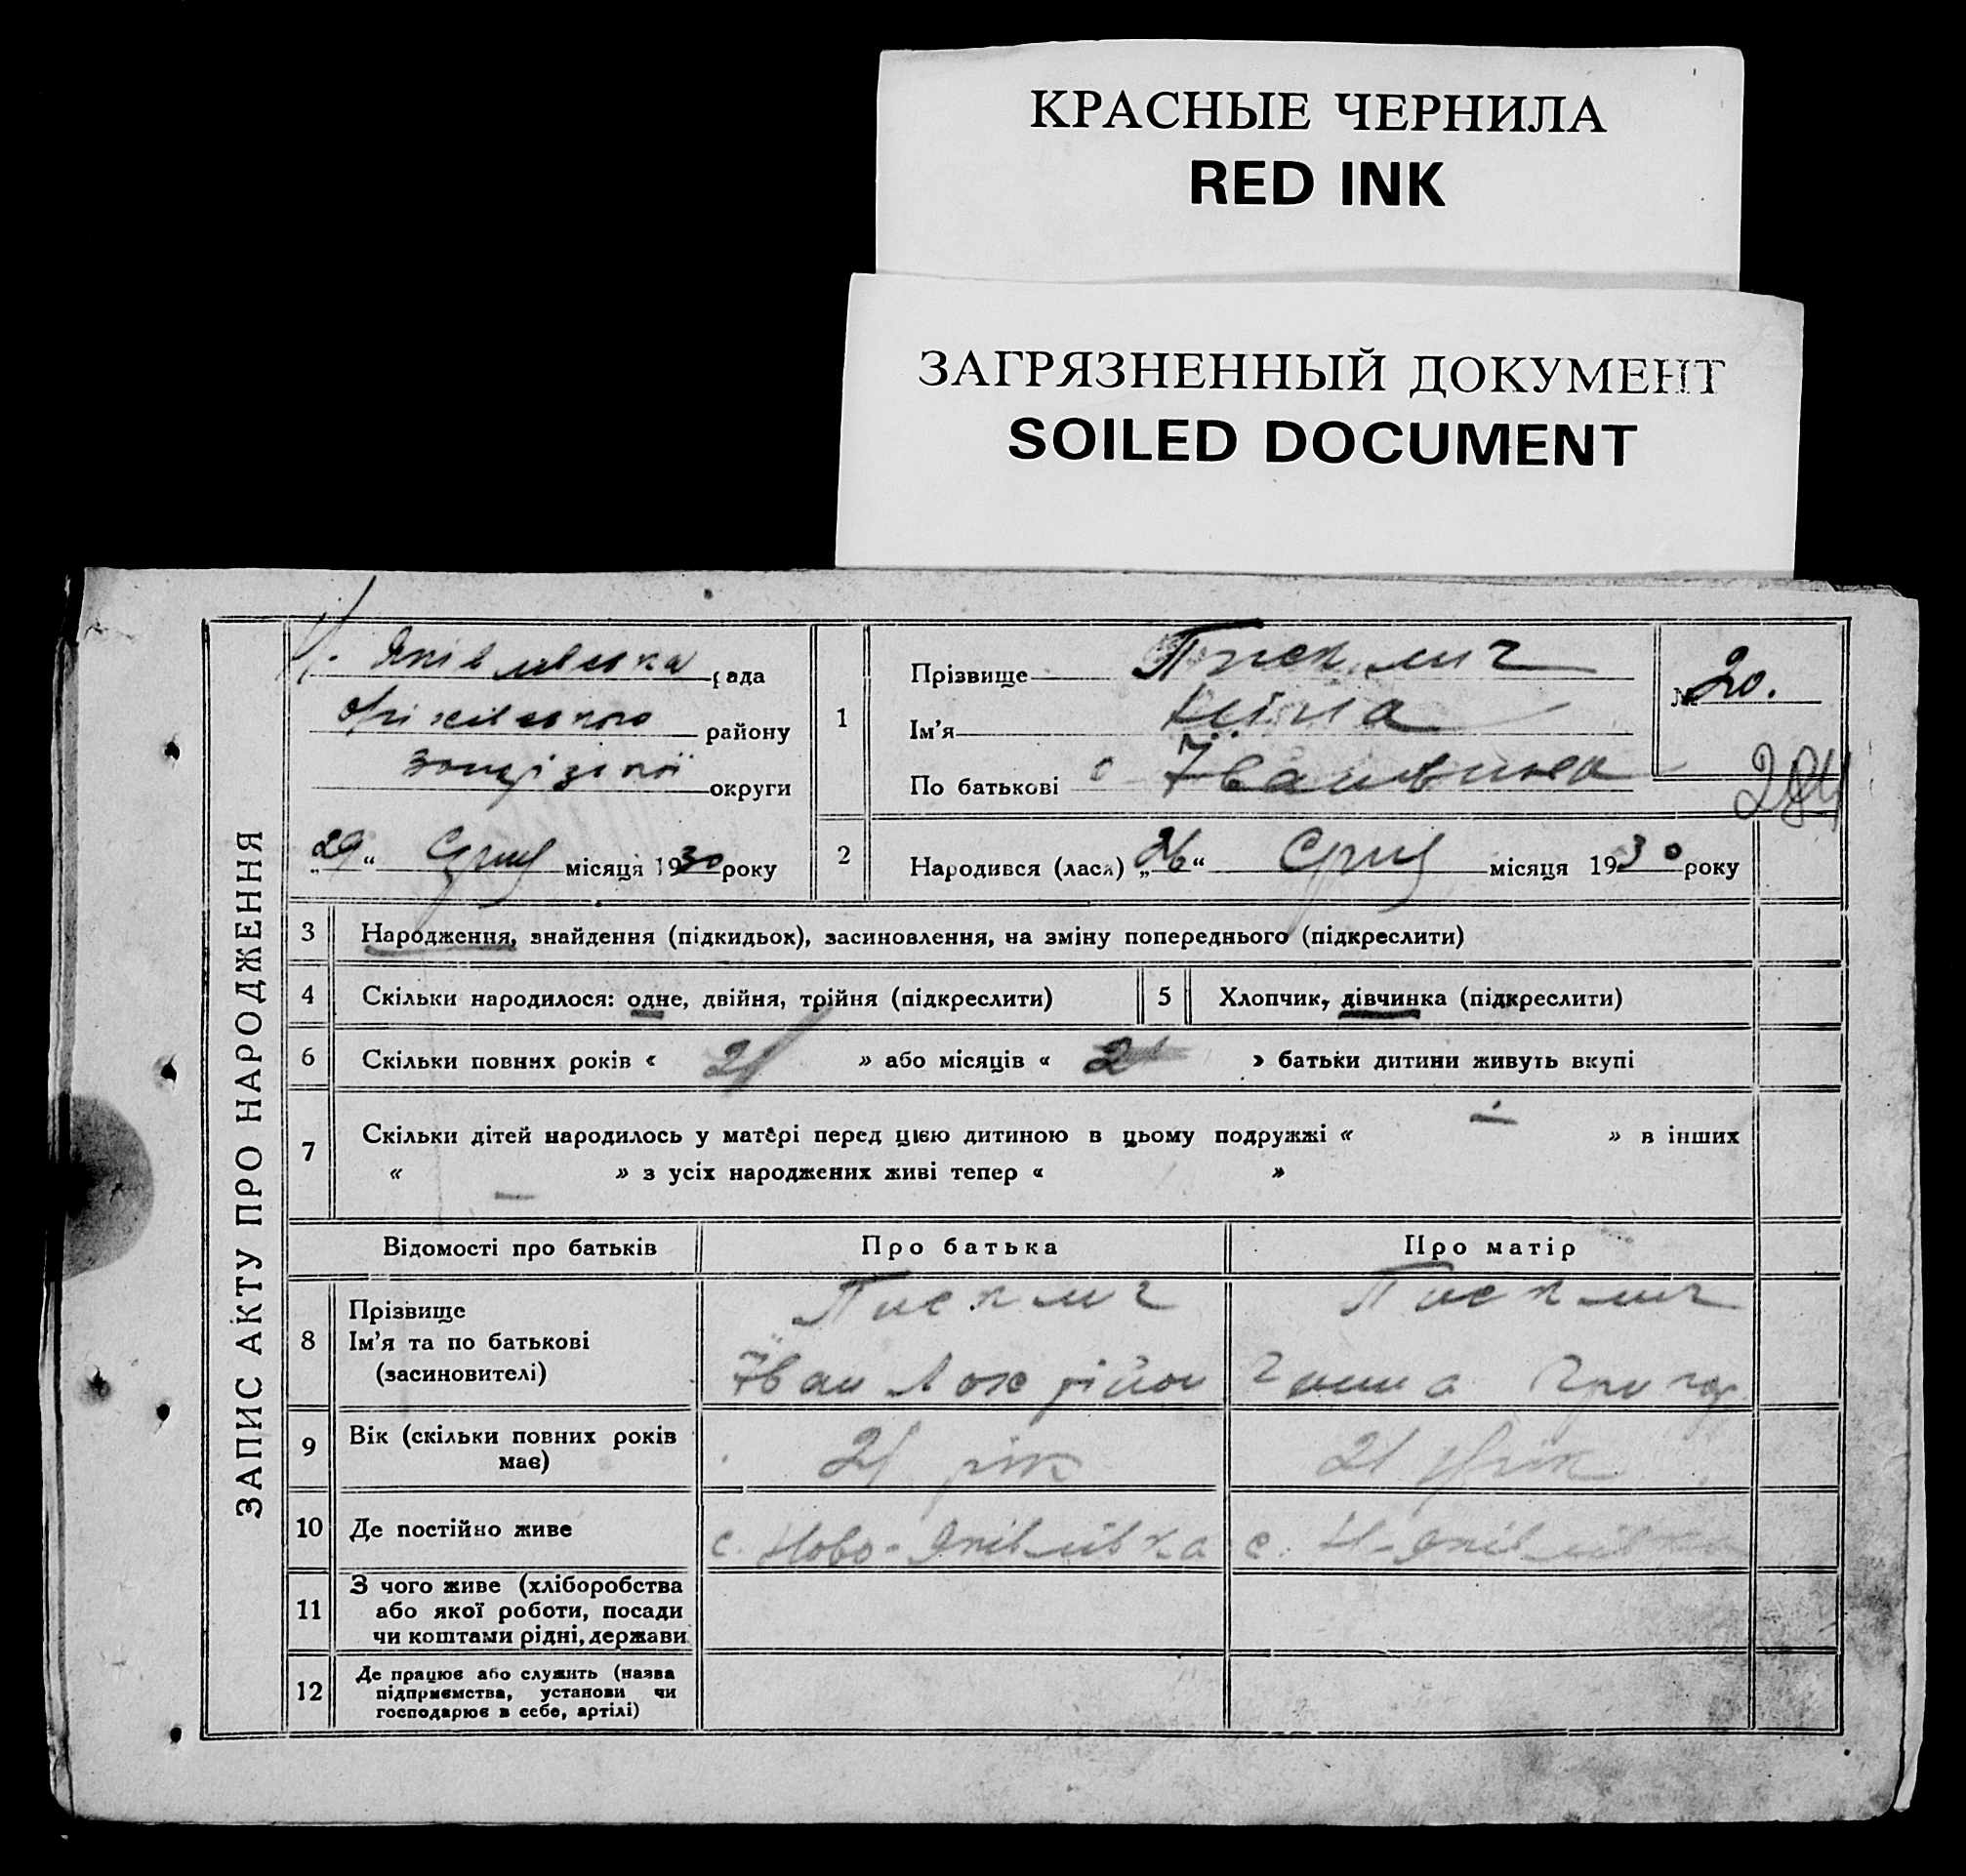 КРАСНЫЕ ЧЕРНИЛА
RED INK
ЗАГРЯЗНЕННЫЙ ДОКУМЕНТ
SOILED DOCUMENT
ЗАПИС АКТУ ПРО НАРОДЖЕННЯ
рада
району
округи
„29“ місяця 1930 року
1
Прізвище
Ім'я Ніна
По батькові Івановна
№ 20.
284
2 Народився (лася) „26“ місяця 1930 року
3 Народження, знайдення (підкидьок), засиновлення, на зміну попереднього (підкреслити)
4 Скільки народилося: одне, двійня, трійня (підкреслити)
5 Хлопчик, дівчинка (підкреслити)
6 Скільки повних років « » або місяців « » батьки дитини живуть вкупі
7 Скільки дітей народилось у матері перед цією дитиною в цьому подружжі « – » в інших
« – » з усіх народжених живі тепер « »
Відомості про батьків Про батька Про матір
8 Прізвище
Ім'я та по батькові
(засиновителі)
Іван
Ганна Григор
9 Вік (скільки повних років має)
21 рік
21 рік
10 Де постійно живе
с. Ново-Яківлівка
с. Н-Яківлівка
11 З чого живе (хліборобства
або якої роботи, посади
чи коштами рідні, держави
12 Де працює або служить (назва
підприємства, установи чи
господарює в себе, артілі)